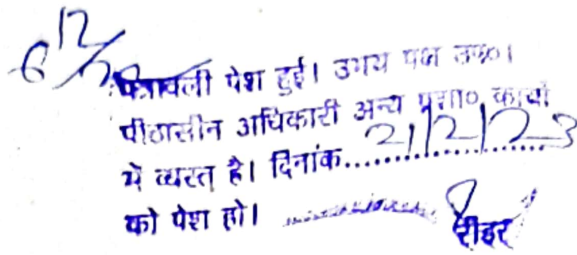 6/12/22
पत्रावली पेश हुई। उभय पक्ष उप०।
पीठासीन अधिकारी अन्य प्रशा० कार्यो
में व्यस्त है। दिनांक....21/2/23
को पेश हो।
रीडर